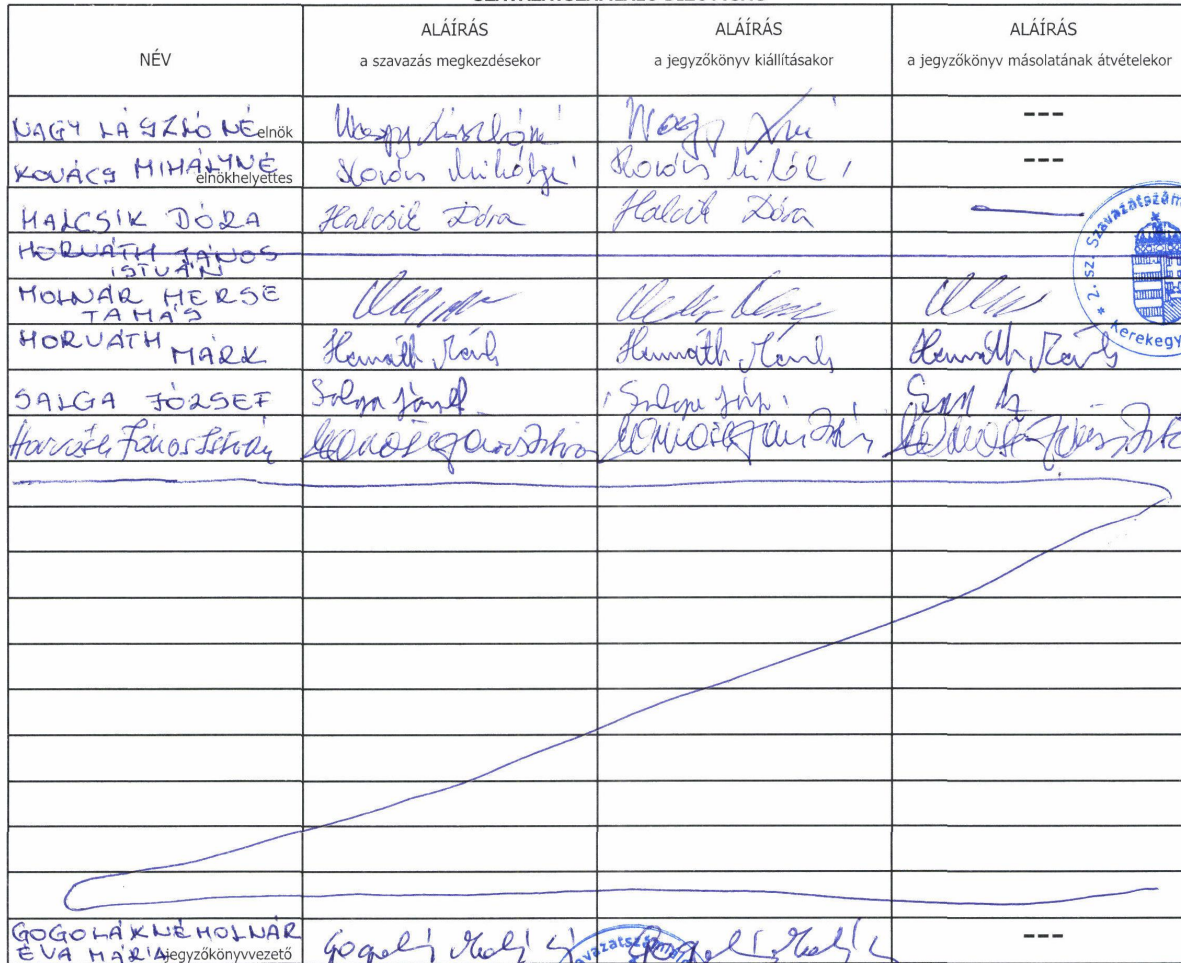 NÉV
ALÁÍRÁS
a szavazás megkezdésekor
ALÁÍRÁS
a jegyzőkönyv kiállításakor
ALÁÍRÁS
a jegyzőkönyv másolatának átvételekor
NAGY LÁSZLÓNÉ elnök Nagy Lászlóné Nagy ---
KOVÁCS MIHÁLYNÉ elnökhelyettes Kovács Mihályné Kovács ---
HALCSIK DÓRA Halcsik Dóra Halcsik Dóra
HORVÁTH JÁNOS
ISTVÁN
MOLNÁR MERSE
TAMÁS
HORVÁTH
MÁRK Horváth Márk Horváth Márk Horváth Márk
SALGA JÓZSEF Salga József Salga
Horváth János István
2. sz. Szavazatszám
Kerekegy
GOGOLÁKNÉ MOLNÁR
ÉVA MÁRIA jegyzőkönyvvezető ---